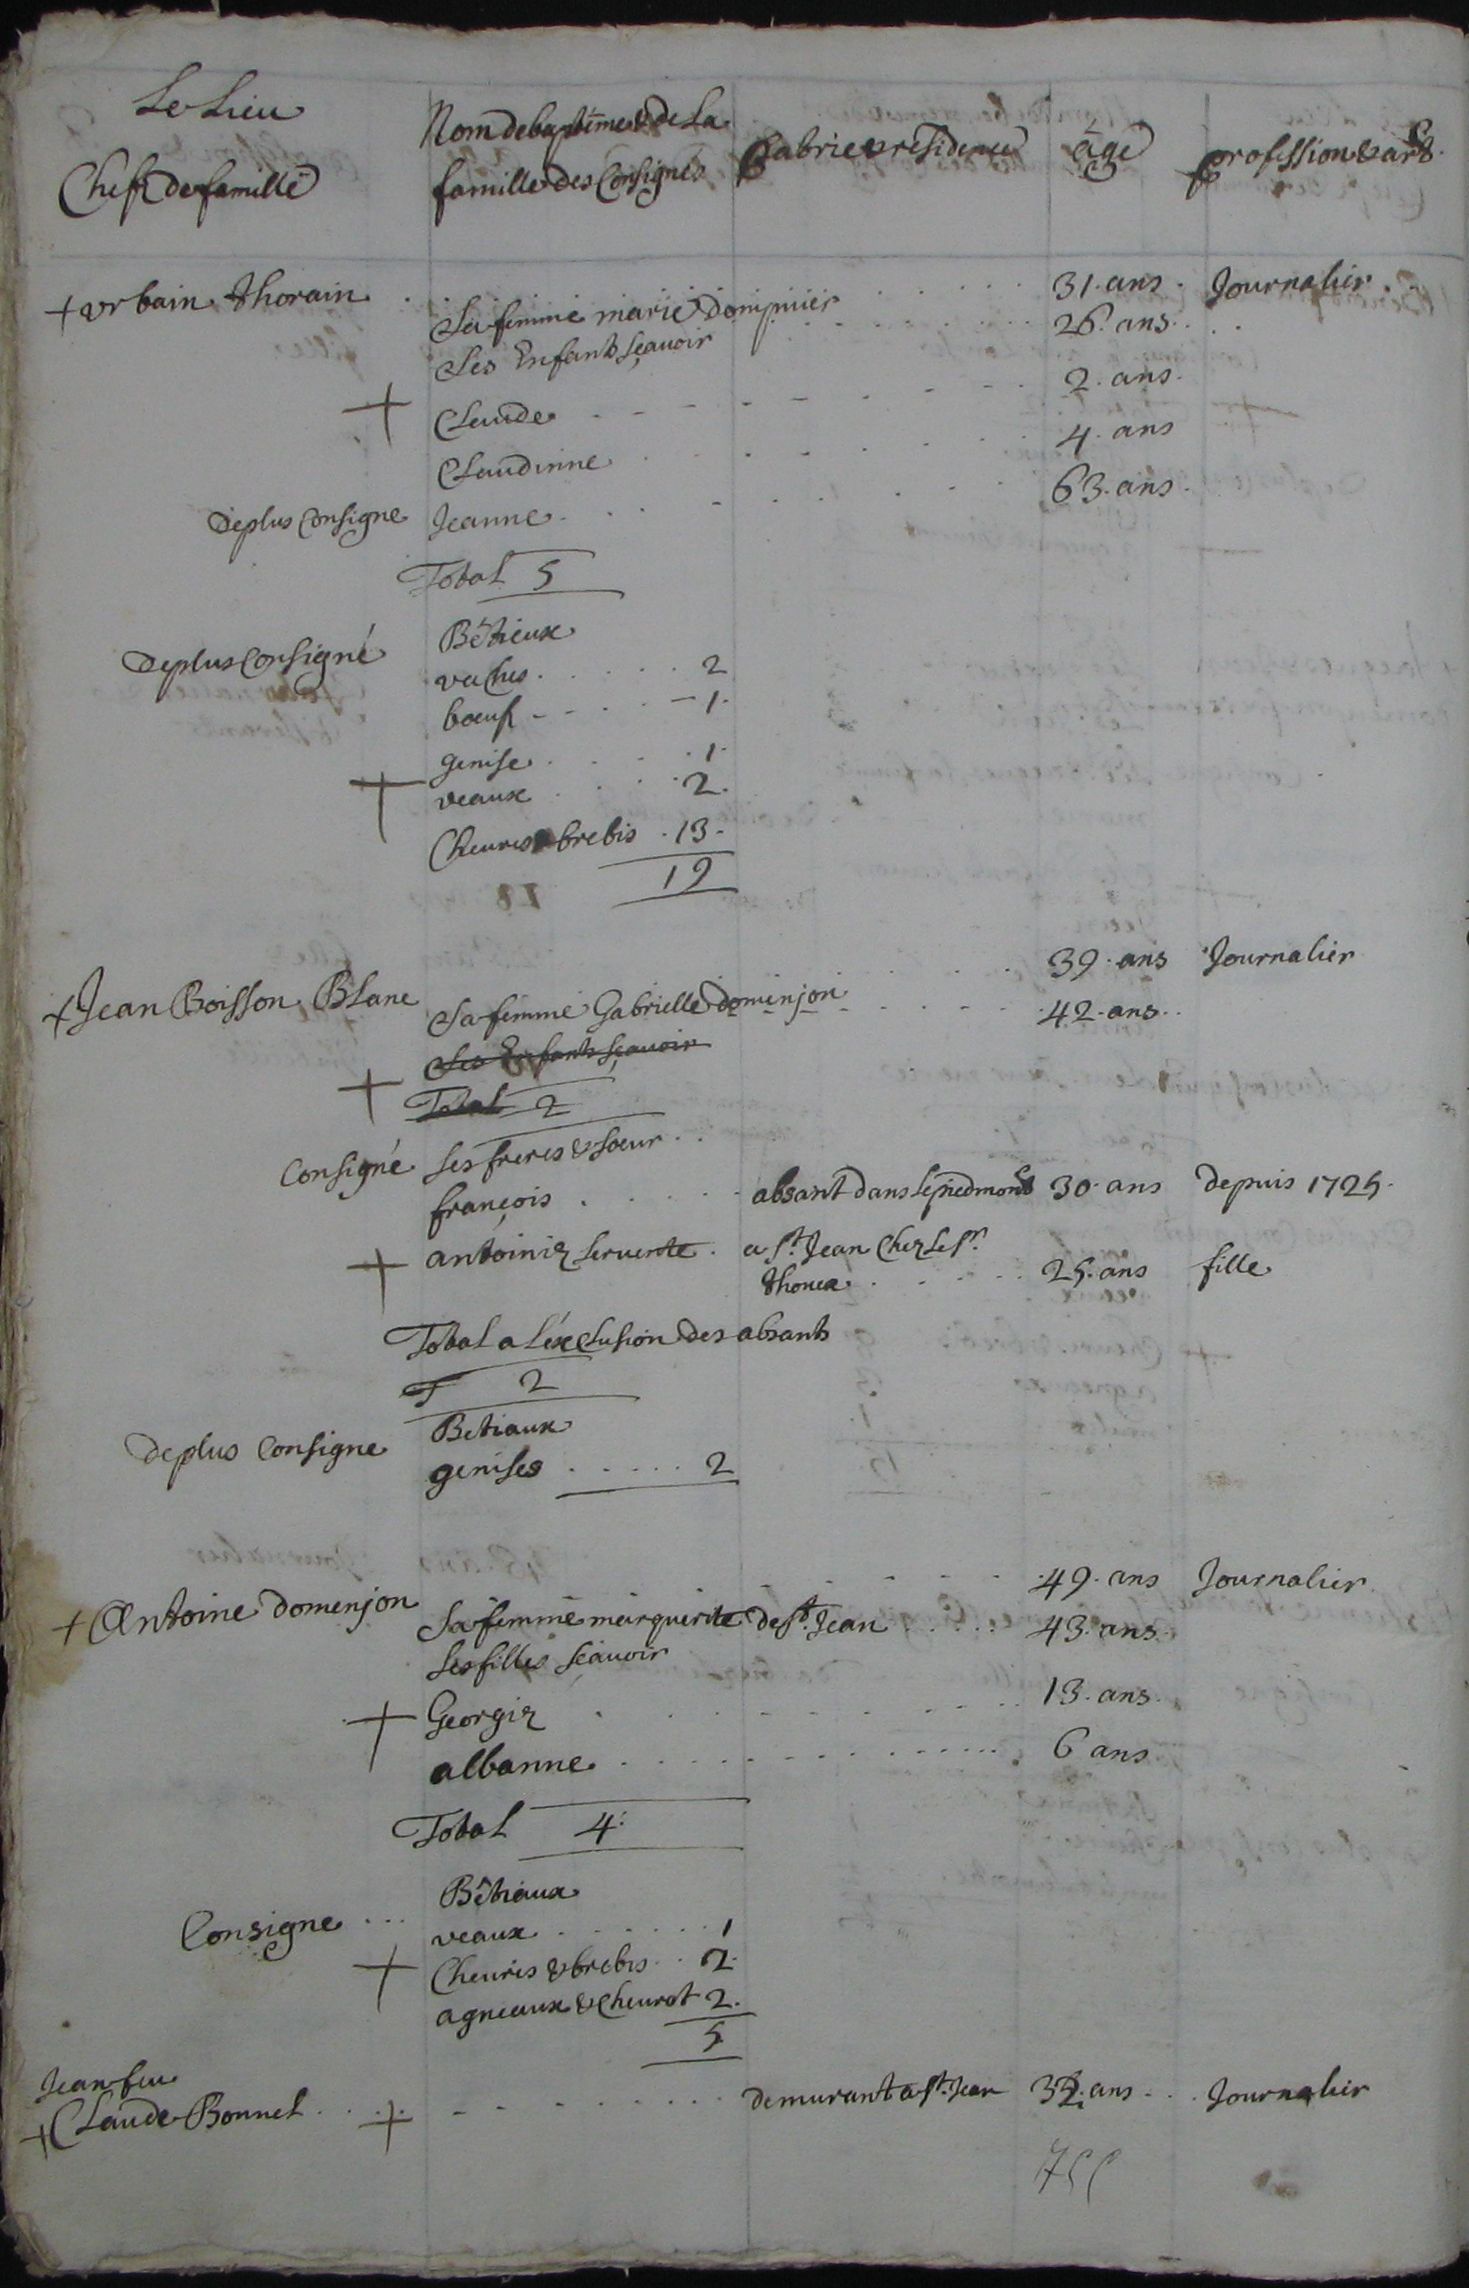 Le Lieu
Chefz de famille
Nom de baptéme & de La
famille des Consignés
Patrie & residence
âge
profession & arts
+ urbain thorain 31. ans. Journalier
Sa femme marie dompnier 26. ans.
Ses Enfants sçavoir
+ Claude 2. ans.
Claudinne 4. ans
De plus Consigne Jeanne 63. ans
Total 5
De plus Consigné Bêtieux
vaches 2
bœuf 1.
genise 1.
+ veaux 2.
Cheures & brebis 13.
19
+ Jean Boisson Blanc 39. ans Journalier
Sa femme Gabrielle dominjon 42. ans
Ses Enfants sçavoir
+ Total 2
Consigné Ses freres & sœur
françois absant dans le piedmont 30. ans depuis 1725.
+ antoiniz servente a St. Jean Chez le Sr.
25. ans fille
Total a l'exclusion des absants
2
De plus Consigne Betiaux
genises 2
+ Antoine domenjon 49. ans Journalier
Sa femme marguerite de St. Jean 43. ans
Ses filles sçavoir
+ Georgiz 13. ans.
albanne 6 ans
Total 4.
Consigne Bêtiaux
veaux 1
+ Cheures & brebis 2.
agneaux & cheurot 2.
5
Jean feu
+ Claude Bonnel + demurant a St. Jean ans Journalier